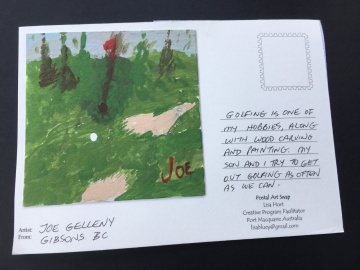 JOE
GOLFING IS ONE OF
MY HOBBIES, ALONG
WITH WOOD CARVING
AND PAINTING. MY
SON AND I TRY TO GET
OUT GOLFING AS OFTEN
AS WE CAN.
Postal Art Swap
Lisa Hort
Creative Program Facilitator
Port Macquarie Australia
Artist: JOE GELLENY
From: GIBSONS BC